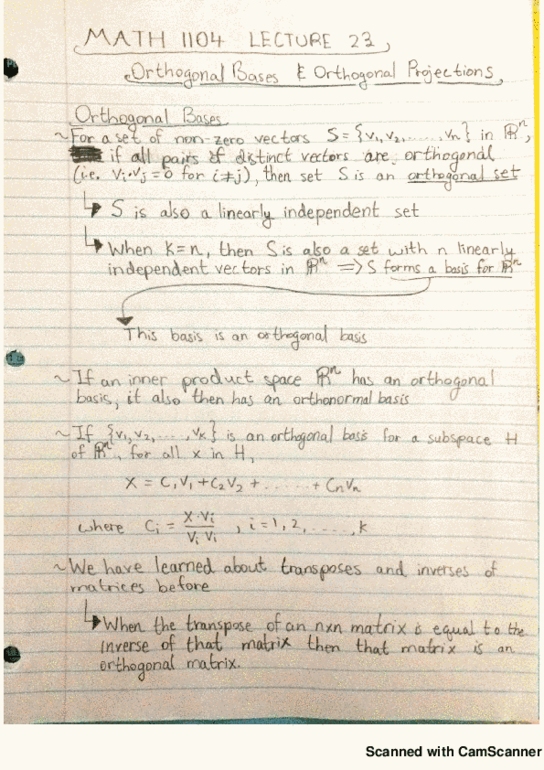 MATH 1104 LECTURE 23
Orthogonal Bases & Orthogonal Projections
Orthogonal Bases
~For a set of non-zero vectors S = {v₁, v₂, ......, vₙ} in ℝⁿ,
if all pairs of distinct vectors are orthogonal
(i.e. vᵢ·vⱼ=0 for i≠j), then set S is an orthogonal set
↳ S is also a linearly independent set
↳ When k=n, then S is also a set with n linearly
independent vectors in ℝⁿ ⟹ S forms a basis for ℝⁿ
This basis is an orthogonal basis
~ If an inner product space ℝⁿ has an orthogonal
basis, it also then has an orthonormal basis
~ If {v₁, v₂, ..., vₖ} is an orthogonal basis for a subspace H
of ℝⁿ, for all x in H,
x = C₁V₁ + C₂V₂ + ...... + CₙVₙ
where Cᵢ = x·vᵢ / vᵢ·vᵢ , i=1,2,......,k
~We have learned about transposes and inverses of
matrices before
↳ When the transpose of an nxn matrix is equal to the
inverse of that matrix then that matrix is an
orthogonal matrix.
Scanned with CamScanner